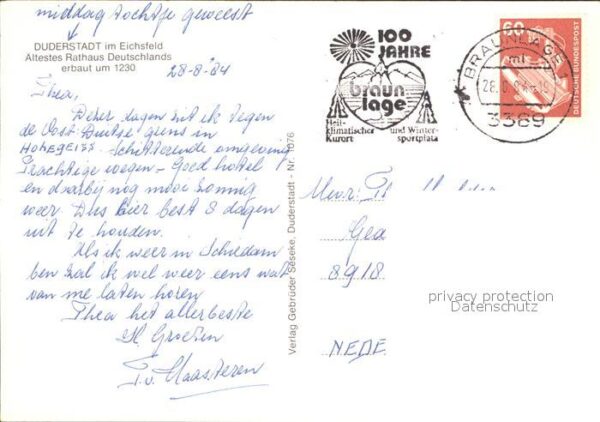 middag tochtje geweest
DUDERSTADT im Eichsfeld
Ältestes Rathaus Deutschlands
erbaut um 1230
28-8-'84
Thea,
Dezer dagen zit ik tegen
de Oost-Duitse grens in
HOHEGEISS. Schitterende omgeving
Prachtige wegen - Goed hotel
en daarbij nog mooi zonnig
weer. Dus hier best 8 dagen
uit te houden.
Als ik weer in Schiedam
ben zal ik wel weer eens wat
van me laten horen
Thea het allerbeste
H. Groeten
Verlag Gebrüder Seseke, Duderstadt - Nr. 1076
100
JAHRE
braun
lage
Heil-
klimatischer
Kurort
und Winter-
sportplatz
BRAUNLAGE 1
3389
60
DEUTSCHE BUNDESPOST
Mevr.
8918
privacy protection
Datenschutz